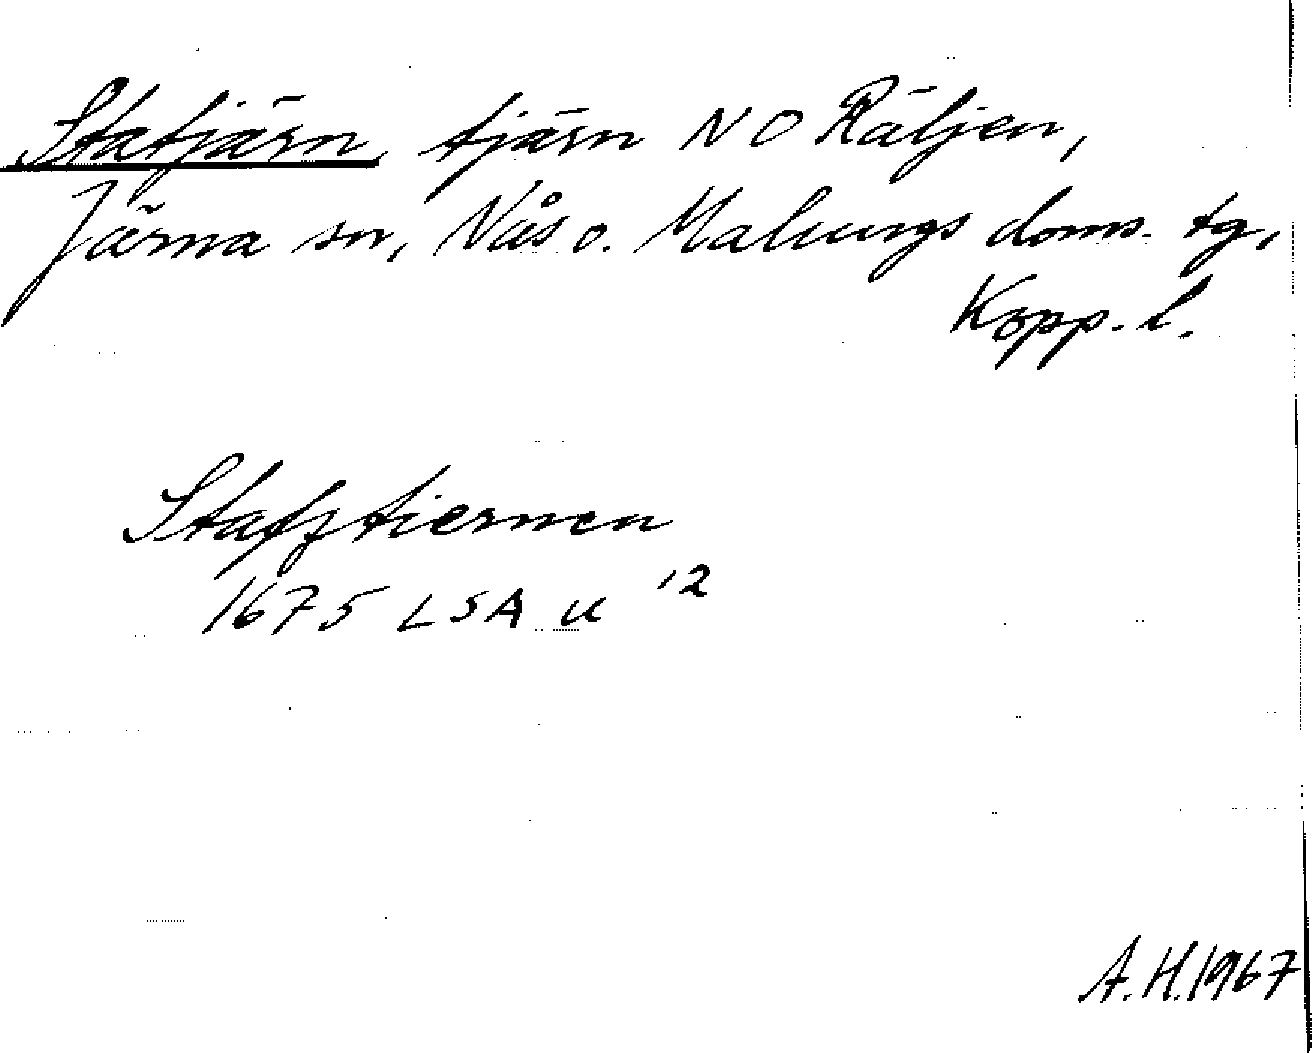 Statjärn, tjärn NO Räljen,
Järna sn, Nås o. Malungs doms. tg,
Kopp. l.
Stafztiernen
1675 LSA U '2
A.H. 1967